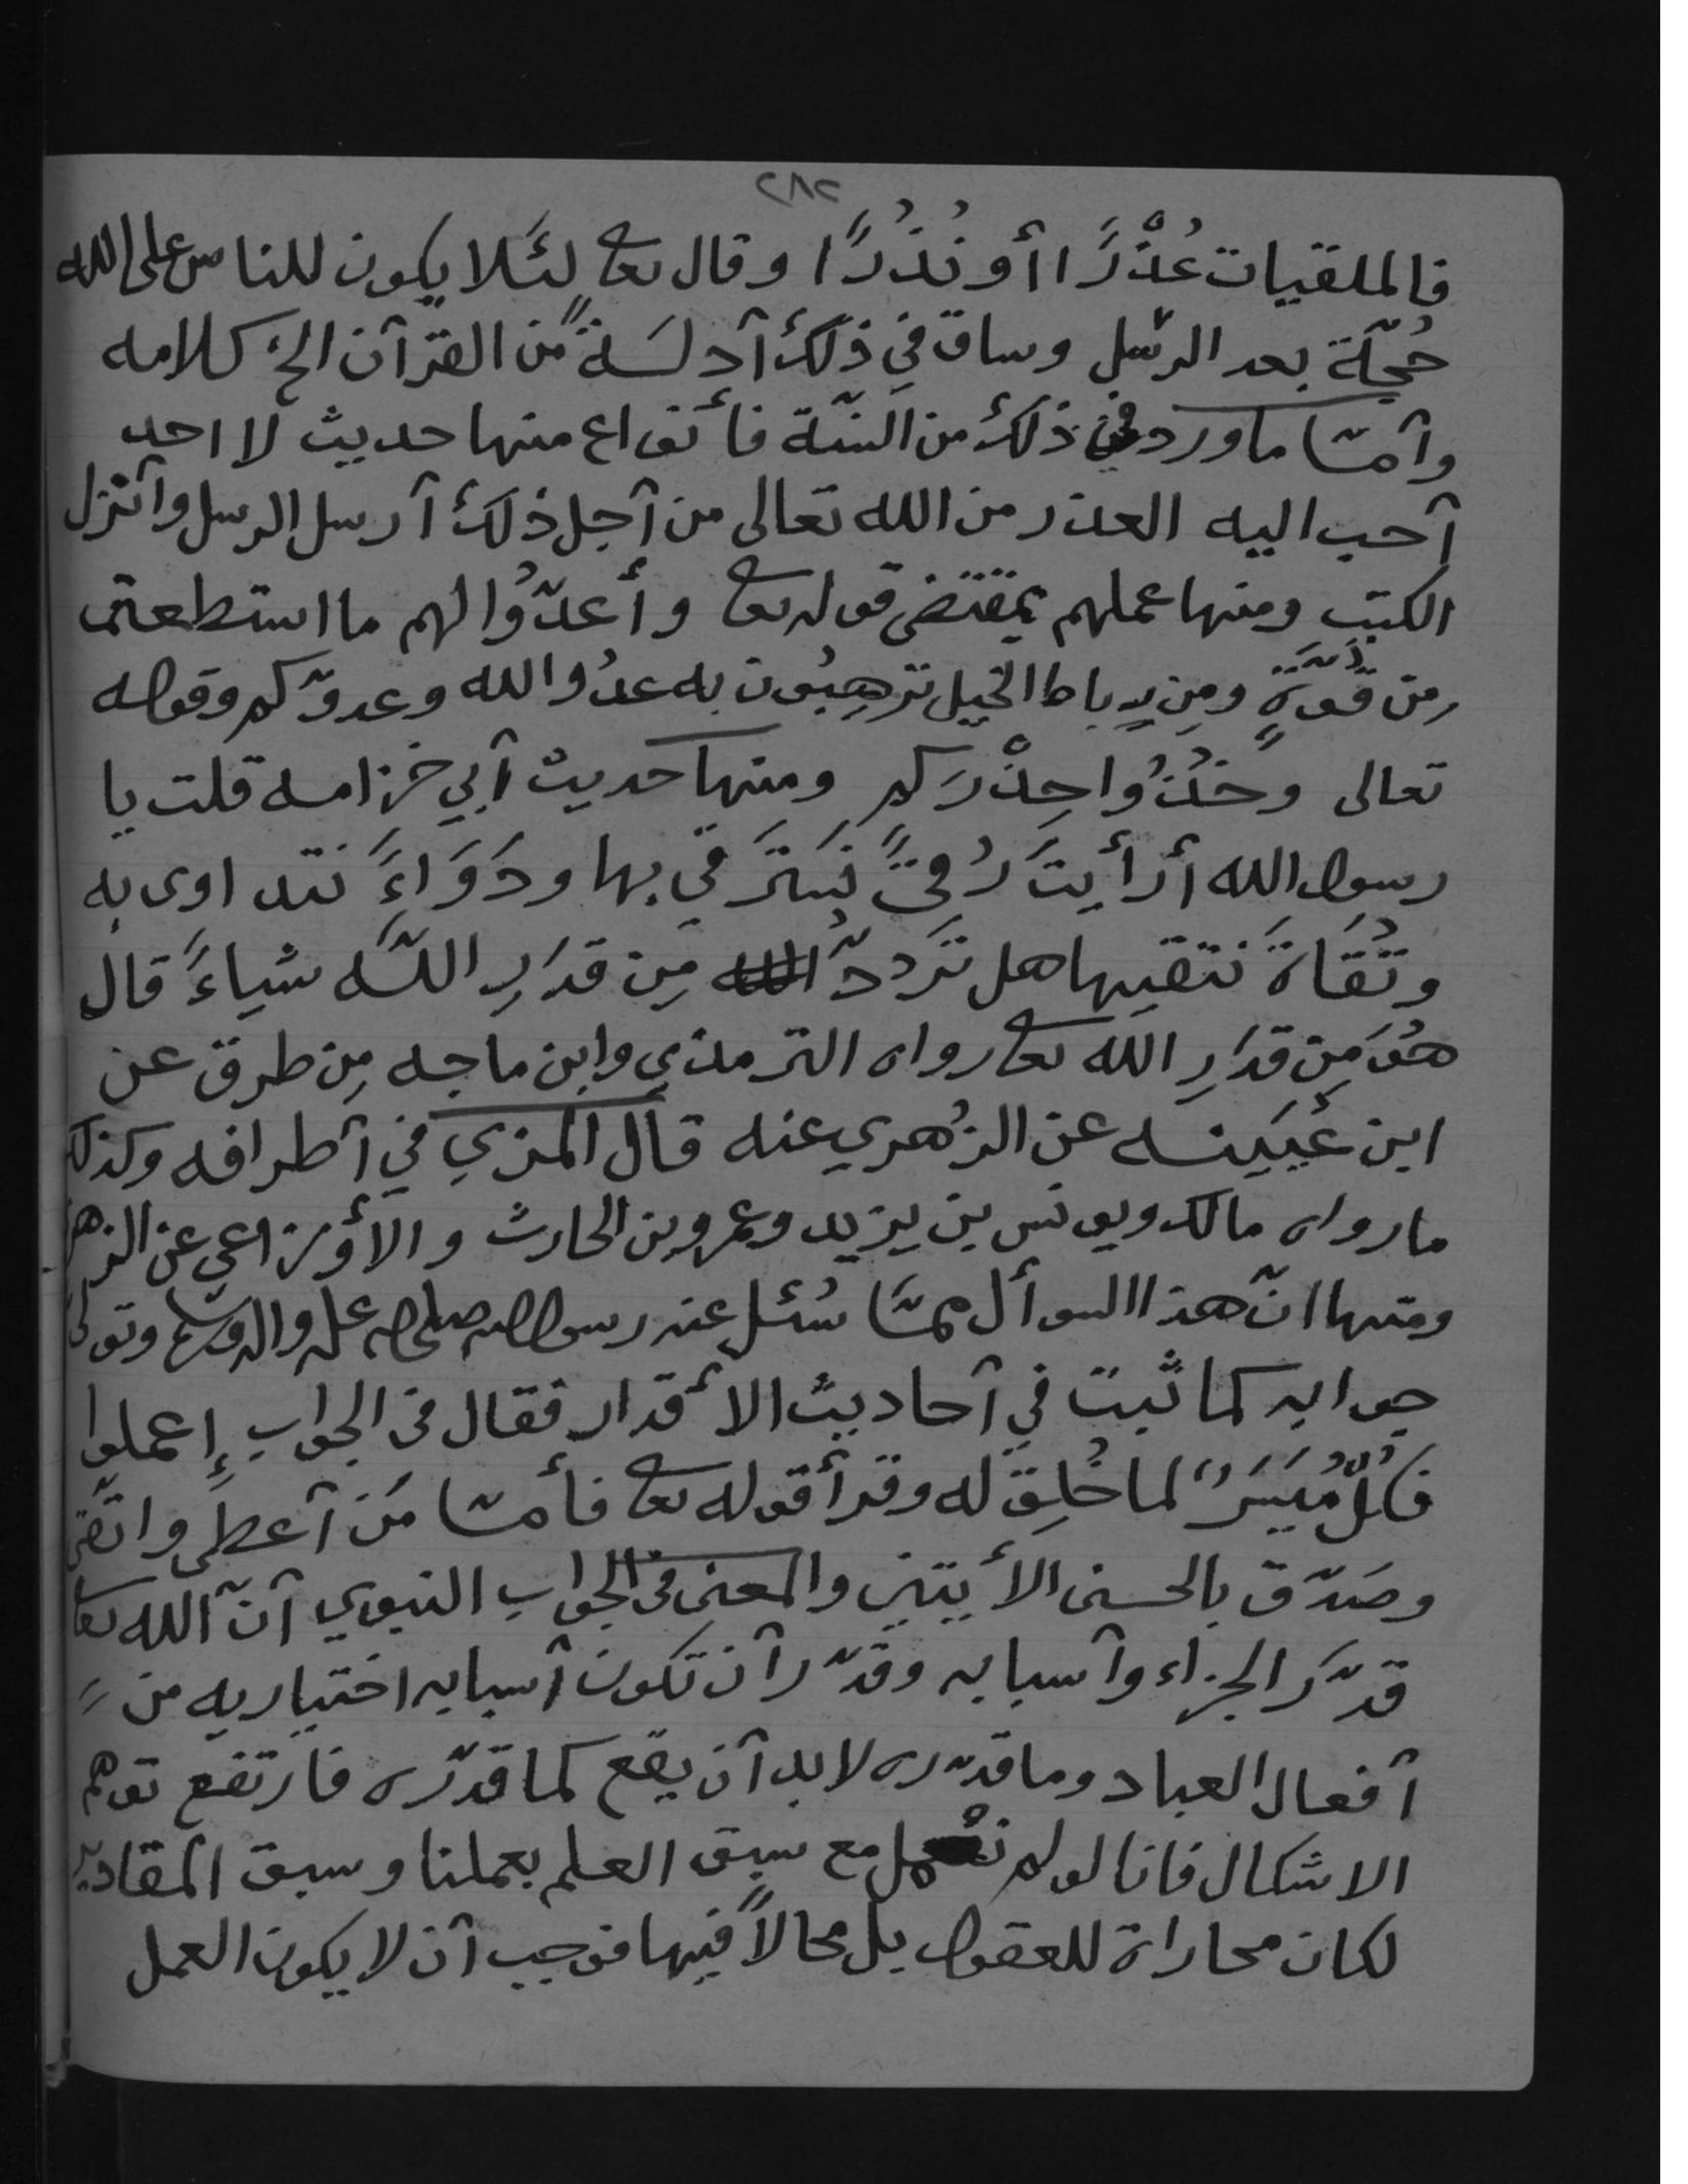 ٢٨٢
فالملقيات عُذْرًا أو نُذُرًا وقال تعا لئَلا يكون للناس على الله
حُجّة بعد الرسل وساق في ذلك أدلة من القرآن الخ كلامه
وأمّا ما ورد في ذلك من السنّة فأنواع منها حديث لا احد
أحب اليه العذر من الله تعالى من أجل ذلك أرسل الرسل وأنزل
الكتب ومنها عملهم بمقتضى قوله تعا وأعدّوا لهم ما استطعتم
من قُوّةٍ ومِن رِباط الخيل تُرهِبُون به عدُو الله وعدوّكم وقوله
تعالى وخُذُوا حِذْرَكم ومنها حديث أبي خزامه قلت يا
رسول الله أرأيتَ رُقىً نَسترَقي بها ودَوَاءً نتداوى به
وتُقَاةً نتقيها هل تَرُدّ مِن قدَرِ اللّه شياءً قال
هُوَ مِن قدَرِ الله تعا رواه الترمذي وابن ماجه مِن طرق عن
ابن عُيَينه عن الزُهري عنه قال المزي في أطرافه وكذلك
ما رواه مالك ويونس بن يزيد وعمرو بن الحارث والأوزاعي عن الزهري
ومنها انّ هذا السوأل ممّا سُئل عنه رسول الله صلى الله عليه وآله وسلم وتولى
جوابه كما ثبت في أحاديث الأقدار فقال في الجواب إعملوا
فكُلٌ مُيَسَرٌ لما خُلِقَ له وقرأ قوله تعا فأمّا مَن أعطى واتّقى
وصَدّق بالحسنى الأيتين والمعنى في الجواب النبوي أنّ الله تعا
قدّرَ الجزاء وأسبابه وقدّر أن تكون أسبابه اختياريه من
أفعال العباد وما قدّره لا بد أن يقع كما قدّره فارتفع توهم
الاشكال فانا لو لم نعمل مع سبق العلم بعملنا وسبق المقادير
لكان محاراة للعقول بل محالاً فيها فوجب أن لا يكون العمل